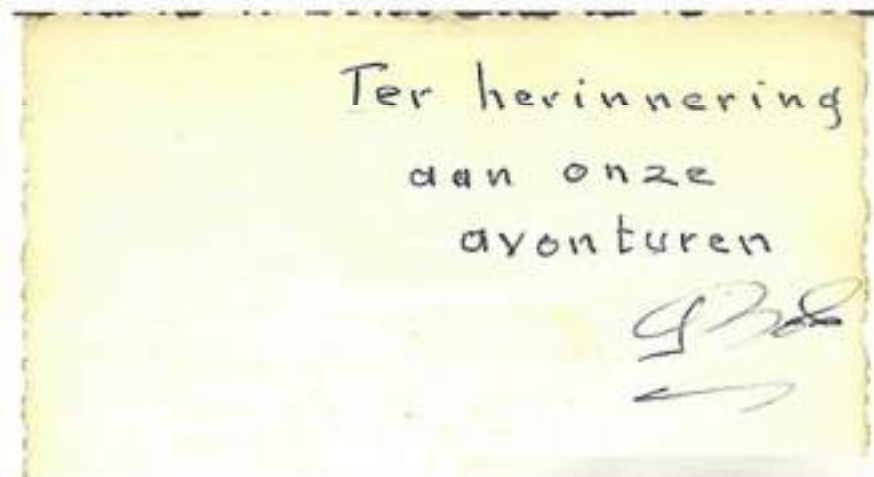 Ter herinnering
aan onze
avonturen